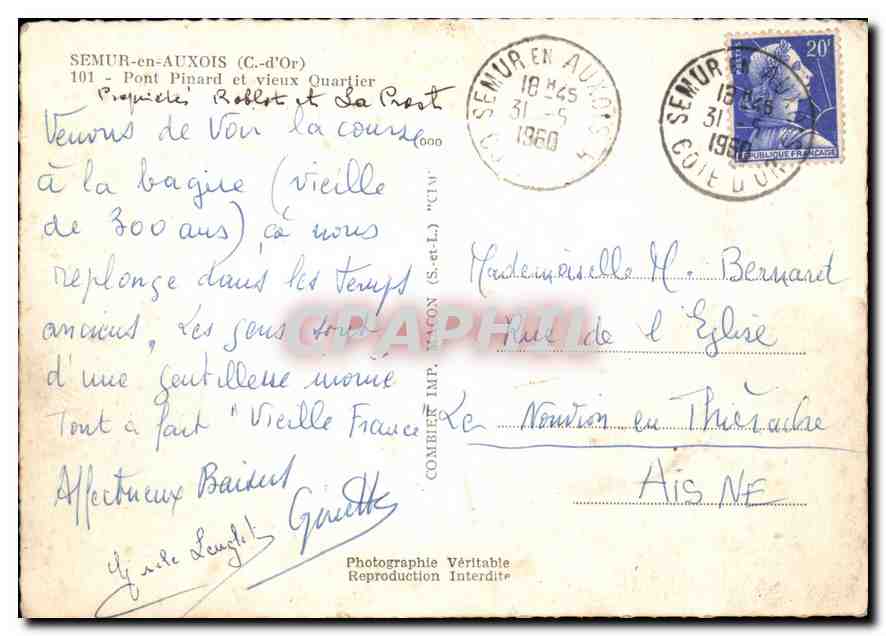 SEMUR-en-AUXOIS (C.-d'Or)
101 - Pont Pinard et vieux Quartier
Propriétés Roblot et La Prost
Venons de voir la course
à la bague (vieille
de 300 ans), çà nous
replonge dans les temps
anciens, Les gens sont
d'une gentillesse
Tout à fait "Vieille France"
Affectueux Baisers
Ginette
COMBIER IMP. MACON (S.-et-L.) "CIM"
SEMUR EN AUXOIS
18 H 45
31 - 5
1960
COTE D'OR
SEMUR EN AUXOIS
18 H 45
31 - 5
1960
COTE D'OR
POSTES
20F
REPUBLIQUE FRANCAISE
Mademoiselle M. Bernard
Rue de l'Eglise
Le Nouvion en Thiérache
AISNE
Photographie Véritable
Reproduction Interdite
CPAPHIL